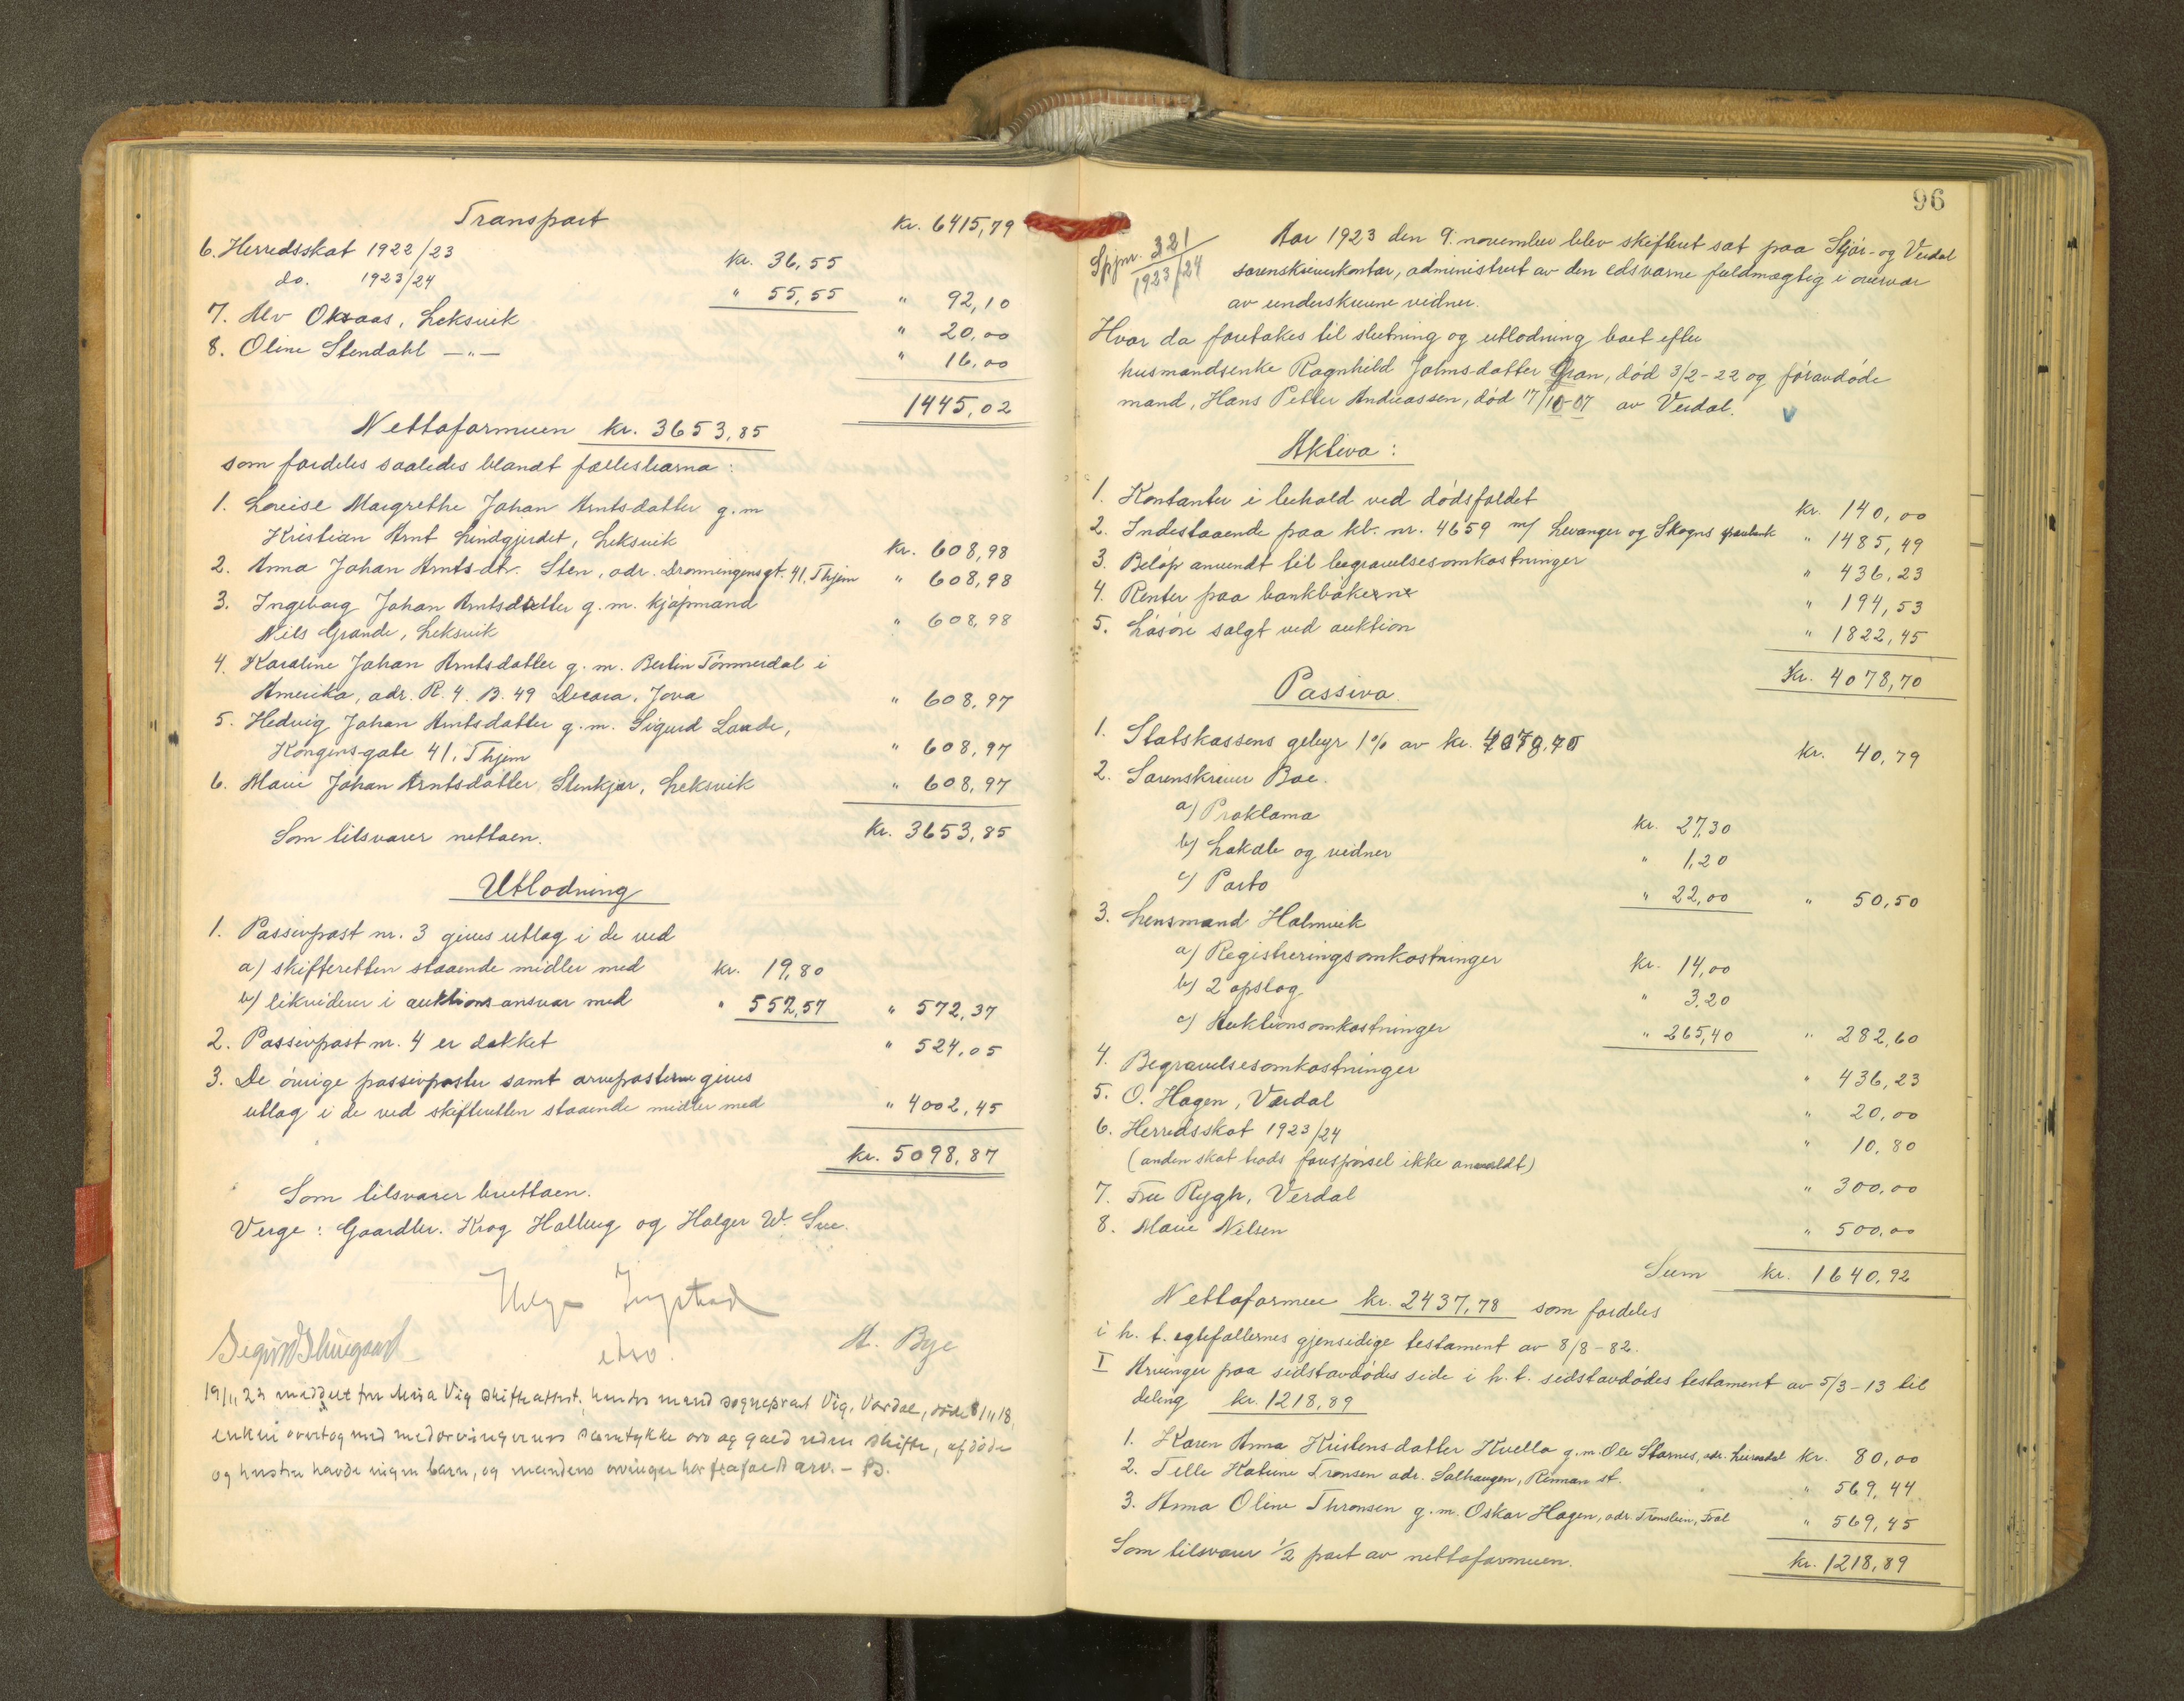 Transport kr. 6415,79
6. Herredsskat 1922/23 kr. 36,55
do. 1923/24 " 55,55 " 92,10
7. Alv Oksaas, Leksvik " 20,00
8. Oline Stendahl —"— " 16,00
1445,02
Nettoformuen kr. 3653,85
som fordeles saaledes blandt fællesbarna:
1. Louise Margrethe Johan Arntsdatter g.m
Kristian Arnt Lindgjerdet, Leksvik kr. 608,98
2. Anna Johan Arntsdtr. Sten, adr. Dronningensgt. 41, Thjem " 608,98
3. Ingeborg Johan Arntsdatter g.m. kjøpmand
Nils Grande, Leksvik " 608,98
4. Karoline Johan Arntsdatter g.m. Bertin Tømmerdal i
Amerika, adr. R. 4. B. 49 Decora, Jova " 608,97
5. Hedvig Johan Arntsdatter g.m. Sigurd Laade,
Kongensgate 41, Thjem " 608,97
6. Marie Johan Arntsdatter Stenkjær, Leksvik " 608,97
Som tilsvarer nettoen. kr. 3653,85
Utlodning
1. Passivpost nr. 3 gives utlag i de ved
a) skifteretten staaende midler med kr. 19,80
b) likviderer i auktionsansvar med " 552,57 " 572,37
2. Passivpost nr. 4 er dækket " 524,05
3. De øvrige passivposter samt arvepostene gives
utlag i de ved skifteretten staaende midler med " 4002,45
kr. 5098,87
Som tilsvarer bruttoen.
Verge: Gaardbr. Krog Halberg og Holger W. Sve.
Helge Ingstad
etsv.
A. Bye
19/11 23 meddelt fru Misa Vig skifteattest, hendes mand sogneprest Vig, Værdal, døde 8/11 18,
enken overtog med medarvingernes samtykke arv og gæld uden skifte, afdøde
og hustru havde ingen barn, og mandens arvinger har frafaldt arv. –
96
Spjnr. 321
1923/24
Aar 1923 den 9. november blev skifteret sat paa Stjør- og Verdal
sorenskriverkontor, administrert av den edsvorne fuldmægtig i overvær
av underskrevne vidner.
Hvor da foretokes til slutning og utlodning boet efter
husmandsenke Ragnhild Johnsdatter Gran, død 3/2-22 og føravdøde
mand, Hans Petter Andreassen, død 17/10-07 av Verdal.
Aktiva:
1. Kontanter i behold ved dødsfaldet kr. 140,00
2. Indestaaende paa kt. nr. 4659 m/ Levanger og Skogns sparebank " 1485,49
3. Beløp anvendt til begravelsesomkostninger " 436,23
4. Renter paa bankbøkerne " 194,53
5. Løsøre solgt ved auktion " 1822,45
Kr. 4078,70
Passiva.
1. Statskassens gebyr 1% av kr. 4078,70 kr. 40,79
2. Sorenskriver Boe.
a) Proklama kr. 27,30
b) Lokale og vidner " 1,20
c) Porto " 22,00 " 50,50
3. Lensmand Holmvik
a) Registreringsomkostninger kr. 14,00
b) 2 opslag " 3,20
c) Auktionsomkostninger " 265,40 " 282,60
4. Begravelsesomkostninger " 436,23
5. O. Hagen, Værdal " 20,00
6. Herredsskat 1923/24 " 10,80
(anden skat trods forespørsel ikke anmeldt)
7. Fru Rygh, Verdal " 300,00
8. Marie Nilsen " 500,00
Sum kr. 1640,92
Nettoformue kr. 2437,78 som fordeles
i h. t. egtefællernes gjensidige testament av 8/8-82.
I Arvinger paa sidstavdødes side i h. t. sidstavdødes testament av 5/3-13 til
deling kr. 1218,89
1. Karen Anna Kristensdatter Kvello g.m. Ole Stornes, adr. kr. 80,00
2. Tille Katrine Tronsen adr. Salhaugen, Rinnan st. " 569,44
3. Anna Oline Thronsen g.m. Oskar Hagen, adr. " 569,45
Som tilsvarer 1/2 part av nettoformuen. kr. 1218,89